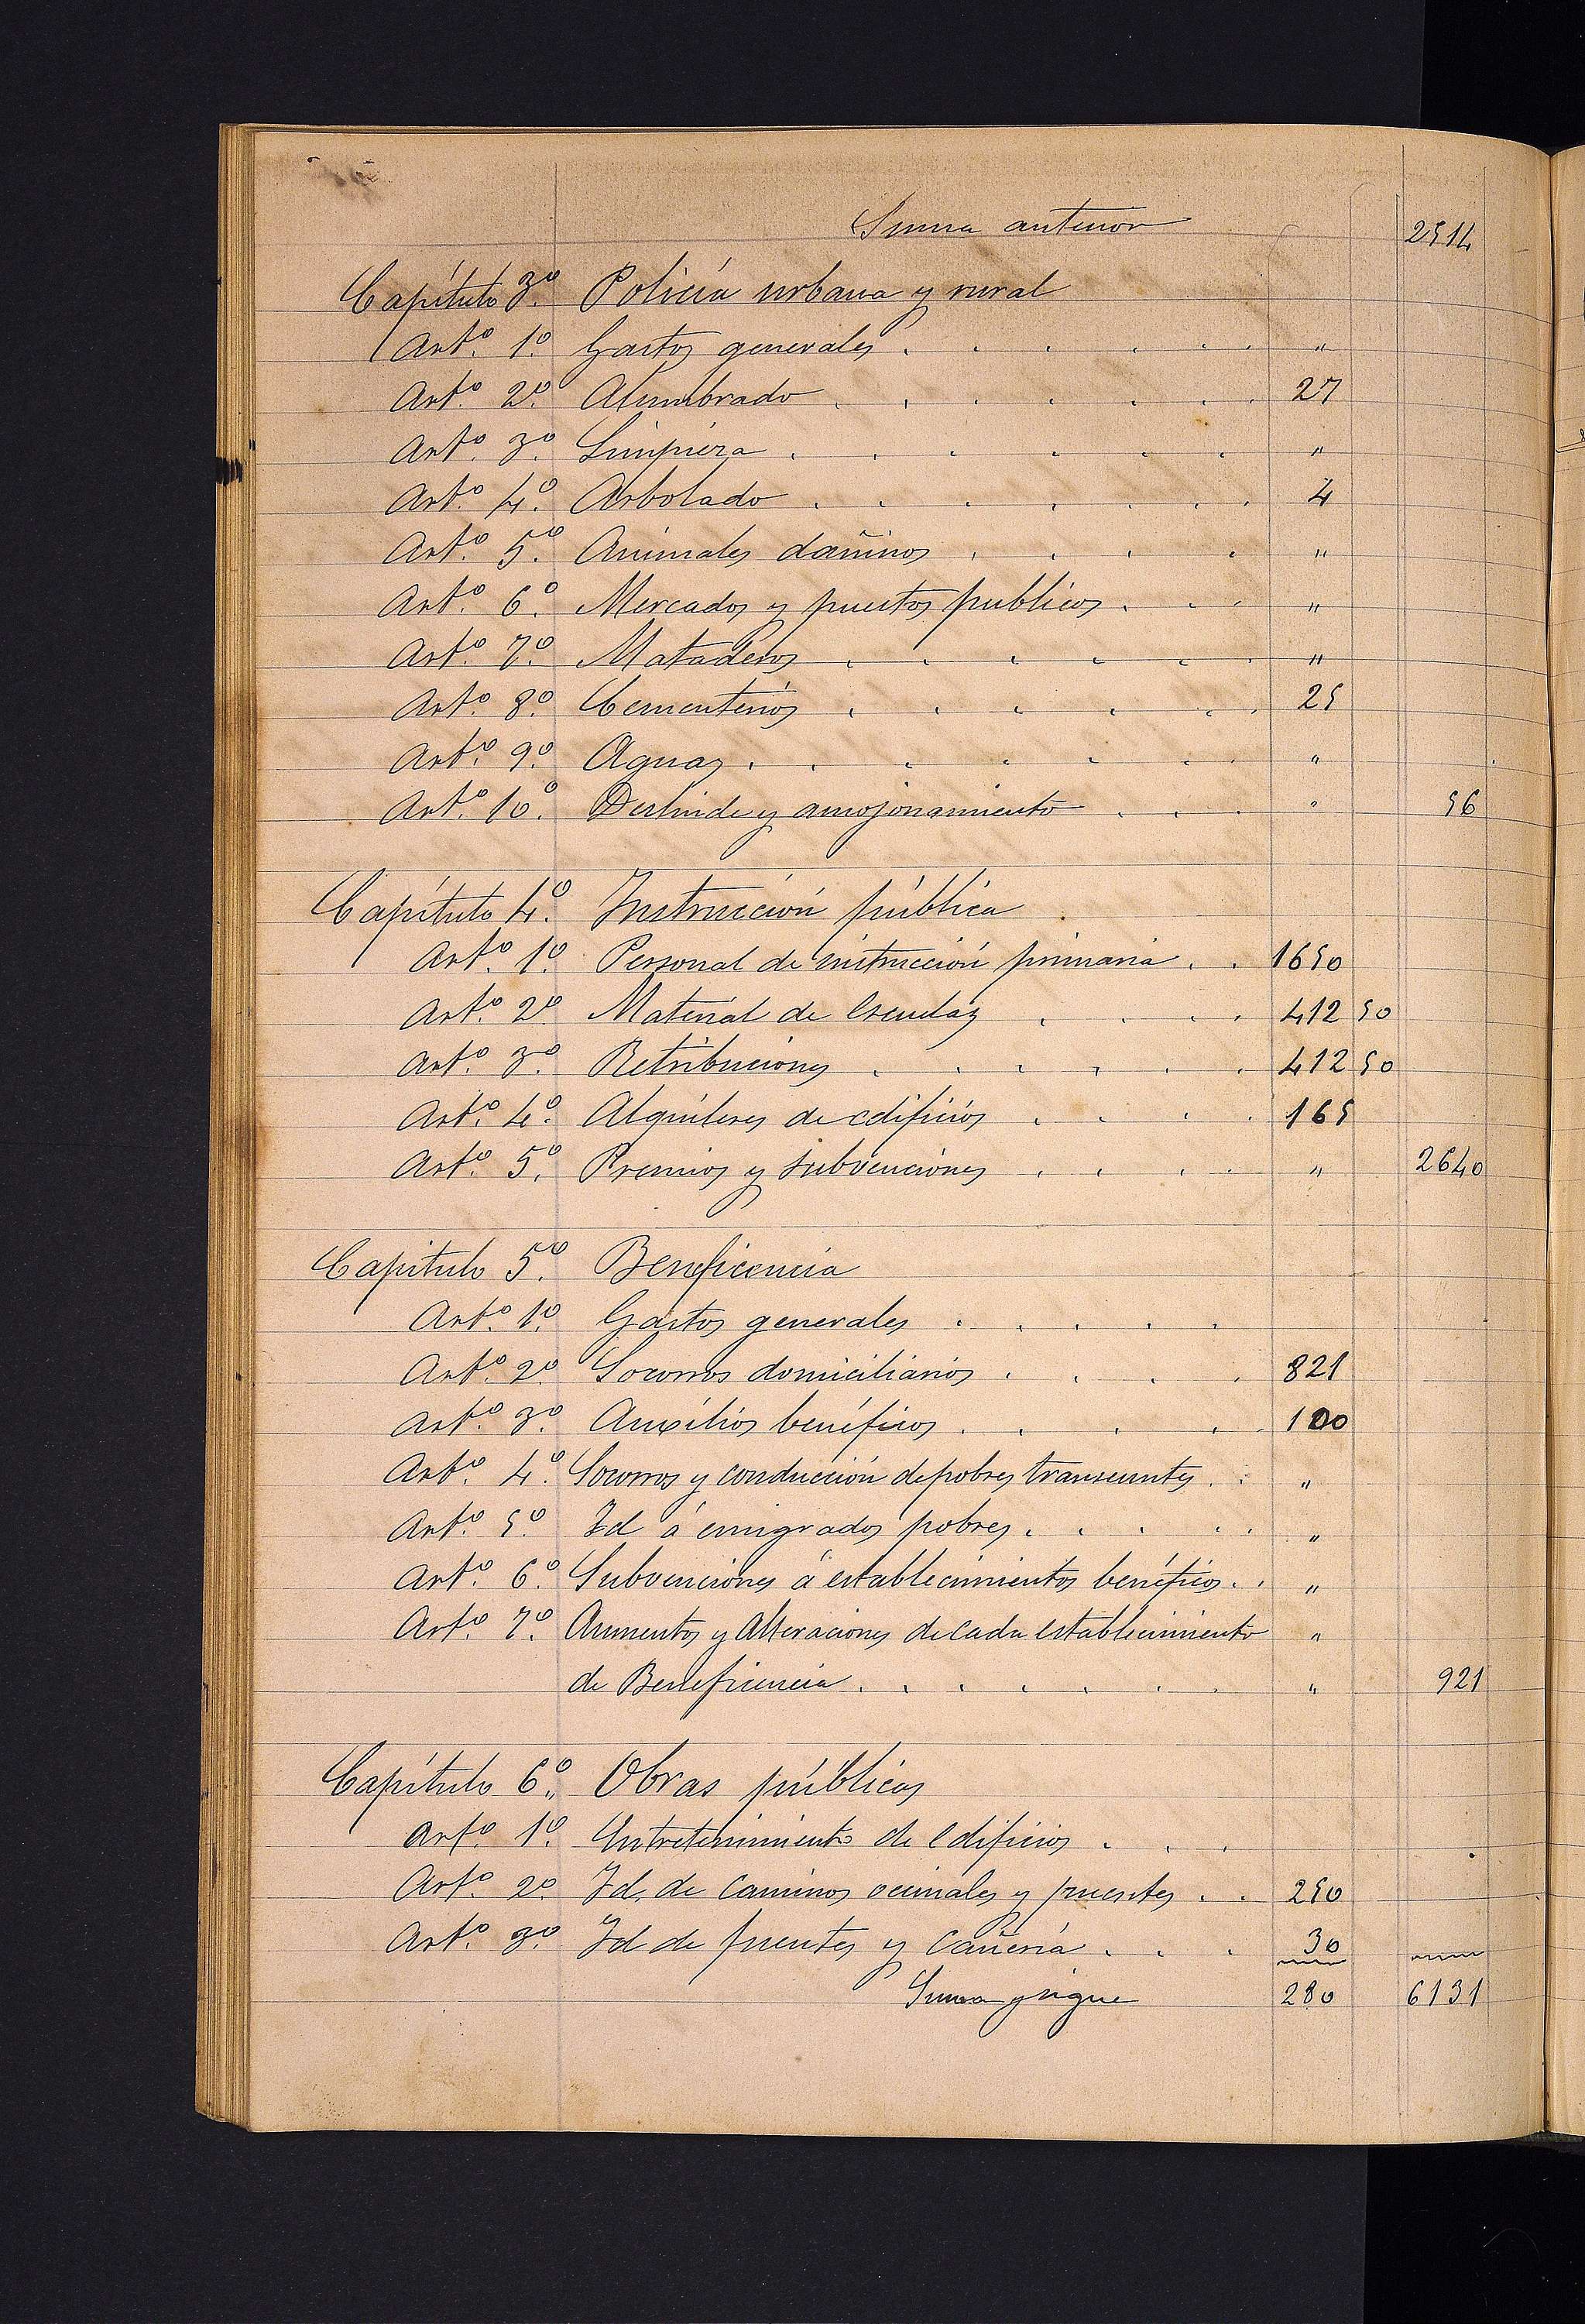 Suma anterior 2514
Capítulo 3º. Policía urbana y rural
Artº. 1º. Gastos generales . . . . . . "
Artº. 2º. Alumbrado . . . . . . . 27
Artº. 3º. Limpieza . . . . . . "
Artº. 4º. Arbolado . . . . . . . 4
Artº. 5º. Animales dañinos . . . . "
Artº. 6º. Mercados y puestos publicos . . . "
Artº. 7º. Mataderos . . . . . . "
Artº. 8º. Cementerios . . . . . . 25
Artº. 9º. Aguas . . . . . . . "
Artº. 10º. Deslinde y amojonamiento . . . " 56
Capítulo 4º. Instrucción pública
Artº. 1º. Personal de instrucción primaria . . 1650
Artº. 2º. Material de Escuelas . . . . 412 50
Artº. 3º. Retribuciones . . . . . . 412 50
Artº. 4º. Alquileres de edificios . . . . 165
Artº. 5º. Premios y subvenciones . . . . " 2640
Capitulo 5º. Beneficencia
Artº. 1º. Gastos generales . . . . .
Artº. 2º. Socorros domiciliarios . . . . 821
Artº. 3º. Auxilios benéficos . . . . . 100
Artº. 4º. Socorros y conducción de pobres transeuntes . . "
Artº. 5º. Id á emigrados pobres . . . . . "
Artº. 6º. Subvenciones á establecimientos benéficos . . "
Artº. 7º. Aumentos y alteraciones de cada establecimiento "
de Beneficencia . . . . . . . " 921
Capítulo 6º. Obras públicas
Artº. 1º. Entretenimiento de edificios . . .
Artº. 2º. Id. de Caminos vecinales y puentes . . 250
Artº. 3º. Id de fuentes y cañería . . . 30
Suma y sigue 280 6131